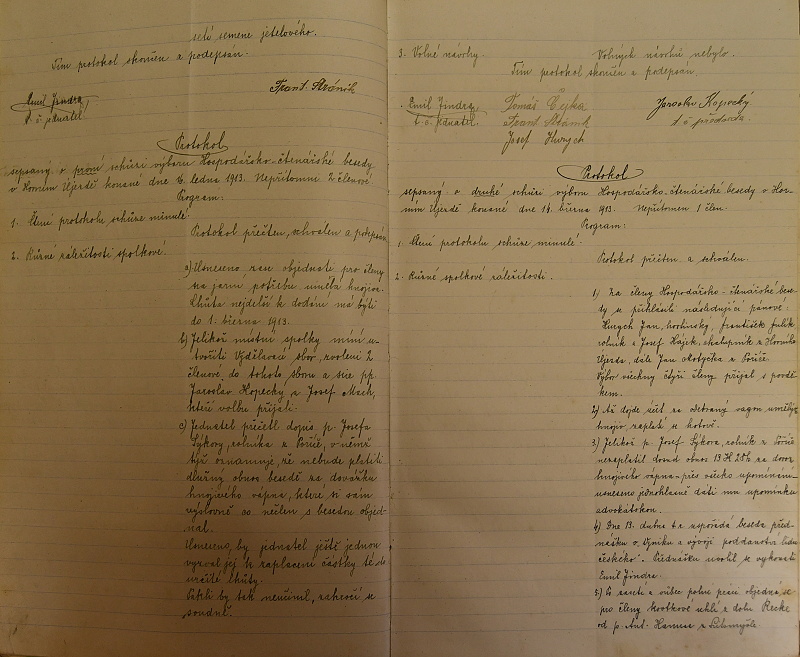 setí semene jetelového.
Tím protokol skončen a podepsán.
Frant. Stráník
Emil Jindra
t. č. jednatel
Protokol
sepsaný o první schůzi výboru Hospodářsko-čtenářské besedy
v Horním Újezdě konané dne 6. ledna 1913. Nepřítomni 2 členové.
Program:
1. Čtení protokolu schůze minulé.
Protokol přečten, schválen a podepsán
2. Různé záležitosti spolkové.
a) Usneseno zase objednati pro členy
na jarní potřebu umělá hnojiva.
Lhůta nejdelší k dodání má býti
do 1. března 1913.
b) Jelikož místní spolky míní u-
tvořiti Vzdělávací sbor, zvoleni 2
členové do tohoto sboru a sice pp.
Jaroslav Kopecký a Josef Mach,
kteří volbu přijali.
c) Jednatel přečetl dopis p. Josefa
Sýkory, rolníka z Poříčí, v němž
týž oznamuje, že nebude platiti
dlužný obnos besedě za dovážku
hnojivého vápna, které si sám
výslovně co nečlen s besedou objed-
nal.
Usneseno, by jednatel ještě jednou
vyzval jej k zaplacení částky té do
určité lhůty.
Pakli by tak neučinil, zakročí se
soudně.
3. Volné návrhy.
Volných návrhů nebylo.
Tím protokol skončen a podepsán.
Emil Jindra
t. č. jednatel.
Tomáš Čejka
Frant
Josef Hurych
Jaroslav Kopecký
t. č. předseda.
Protokol
sepsaný o druhé schůzi výboru Hospodářsko-čtenářské besedy v Hor-
ním Újezdě konané dne 14. března 1913. Nepřítomen 1 člen.
Program:
1. Čtení protokolu schůze minulé.
Protokol přečten a schválen.
2. Různé spolkové záležitosti.
1) Za členy Hospodářsko-čtenářské bese-
dy se přihlásili následující pánové:
Hurych Jan, hostinský, František
rolník a Josef Hájek, chalupník z Horního
Újezda, dále Jan z Poříčí.
Výbor všechny čtyři členy přijal s povdě-
kem.
2.) Až dojde účet za odebraný vagon umělých
hnojiv, zaplatí se hotově.
3.) Jelikož p. Josef Sýkora, rolník z Poříčí
nezaplatil dosud obnos 13 K 25 h za dovoz
hnojivého vápna přes všecko upomínání,
usneseno jednohlasně dáti mu upomínku
advokátskou.
4) Dne 13. dubna t. r. uspořádá beseda před-
nášku o „Vzniku a vývoji poddanství lidu
českého". Přednášku uvolil se vykonati
Emil Jindra.
5.) K a vůbec polní práci objedná se
pro členy kostkové uhlí z dolu
od p. Ant. z Litomyšle.